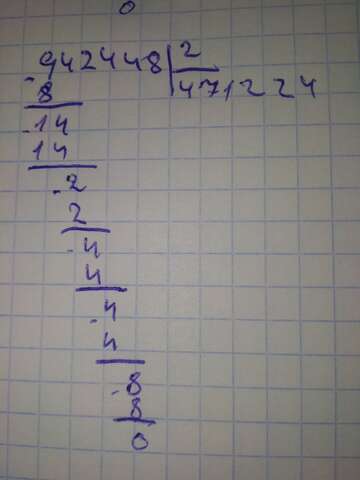 0
-942448|2
8 471224
-14
14
-2
2
-4
4
-4
4
-8
8
0